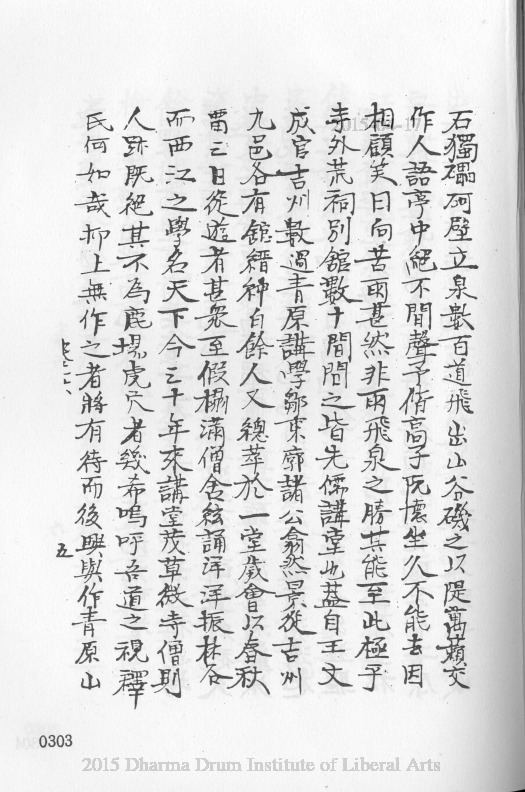 石獨礌砢壁立泉數百道飛出山谷磯之以隄萬藾交
作人語亭中絕不聞聲予偕高子阮懷坐久不能去因
相顧笑曰向苦雨甚然非雨飛泉之勝其能至此極乎
寺外荒祠別館數十間問之皆先儒講堂也葢自王文
成官吉州數過青原講學鄒東廓諸公翕然景從吉州
九邑各有舘縉紳白餘人又總萃於一堂歲會以春秋
畱三日從遊者甚衆至假榻滿僧舍絃誦洋洋振林谷
而西江之學名天下今三十年來講堂茂草微寺僧則
人跡既絕其不為鹿場虎穴者幾希嗚呼吾道之視釋
氏何如哉抑上無作之者將有待而後興與作青原山
五
0303
2015 Dharma Drum Institute of Liberal Arts